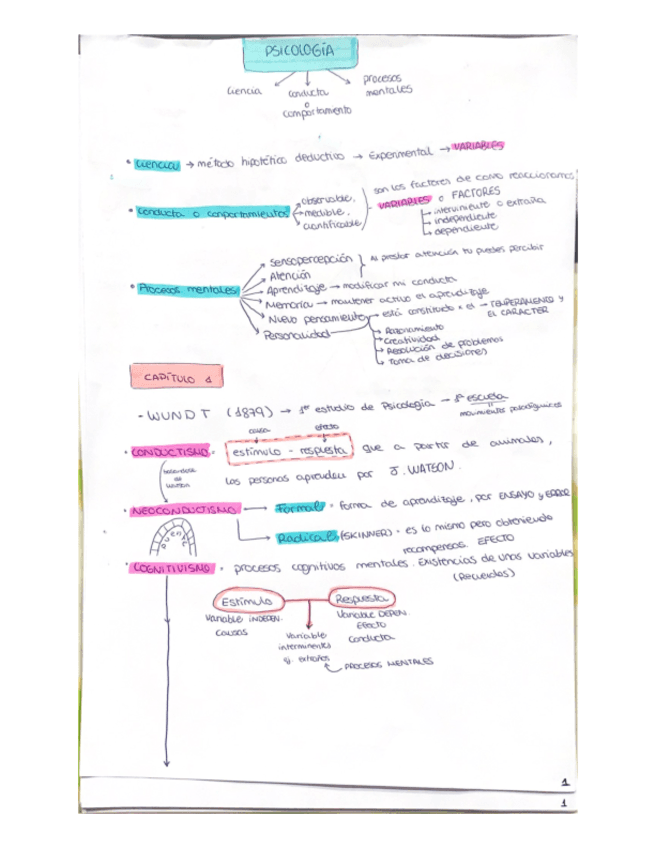 PSICOLOGÍA
Ciencia
conducta
o
comportamiento
procesos
mentales
• Ciencia → método hipotético deductivo → Experimental → VARIABLES
• Conducta o comportamiento
observable,
medible,
cuantificable
son los factores de como reaccionamos
VARIABLES o FACTORES
interviniente o extraña
independiente
dependiente
• Procesos mentales
Sensopercepción
Atención
Al prestar attención tu puedes percibir
Aprendizaje → modificar mi conducta
Memoria → mantener activo el aprendizaje
Nuevo pensamiento
Personalidad
está constituido x el → TEMPERAMENTO y
EL CARACTER
Razonamiento
Creatividad
Resolución de problemas
Toma de decisiones
CAPÍTULO 1
- WUNDT (1879) → 1er estudio de Psicología → 1ª escuela
movimientos paradigmáticos
causa
efecto
• CONDUCTISMO = estímulo - respuesta que a partir de animales,
las personas aprenden por J. WATSON.
basandose
de
watson
• NEOCONDUCTISMO → Formal = forma de aprendizaje, por ENSAYO y ERROR
Radical (SKINNER) = es lo mismo pero obteniendo
recompensas. EFECTO
PUENTE
• COGNITIVISMO = procesos cognitivos mentales. Existencias de unas variables
(Recuerdos)
Estímulo
Respuesta
Variable INDEPEN.
causas
Variable DEPEN.
Efecto
Conducta
Variable
interminentes
extraños
PROCESOS MENTALES
1
1